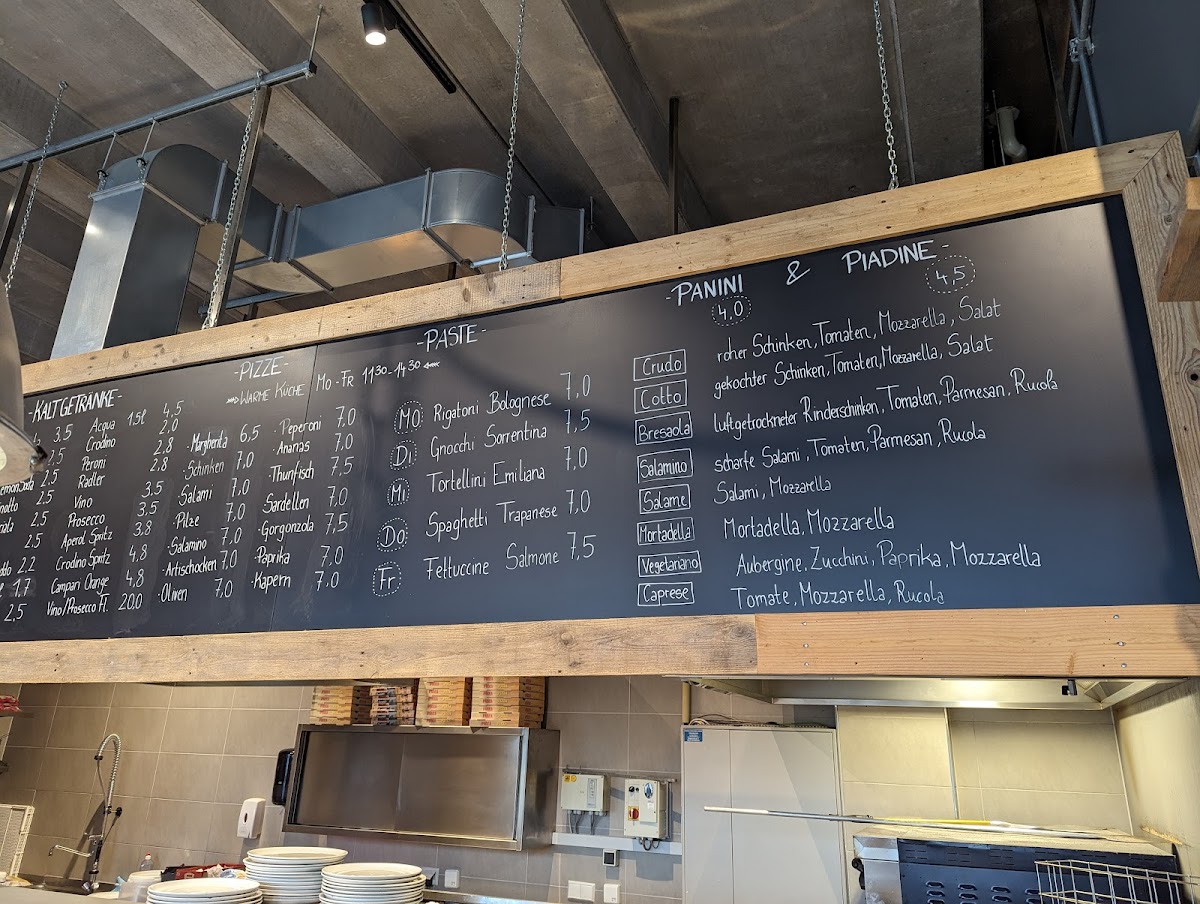 -KALTGETRÄNKE-
3.5 Acqua 1.5l 4,5
Crodino 2.0
2.5 Peroni 2.8
2.5 Radler 2.8
2.5 Vino 3.5
Prosecco 3.5
2.5 Aperol Spritz 3.8
2.2 Crodino Spritz 4,8
1.7 Campari Orange 4,8
2,5 Vino/Prosecco Fl. 20,0
-PIZZE-
WARME KÜCHE MO-FR 11 30-14 30
·Margherita 6,5
·Schinken 7,0
·Salami 7,0
·Pilze 7,0
·Salamino 7,0
·Artischocken 7,0
·Oliven 7,0
·Peperoni 7,0
·Ananas 7,0
·Thunfisch 7,5
·Sardellen 7,0
·Gorgonzola 7,5
·Paprika 7,0
·Kapern 7,0
-PASTE-
MO Rigatoni Bolognese 7,0
Di Gnocchi Sorrentina 7,5
Mi Tortellini Emiliana 7,0
Do Spaghetti Trapanese 7,0
Fr Fettuccine Salmone 7,5
-PANINI & PIADINE-
4,0 4,5
Crudo roher Schinken, Tomaten, Mozzarella, Salat
Cotto gekochter Schinken, Tomaten, Mozzarella, Salat
Bresaola luftgetrockneter Rinderschinken, Tomaten, Parmesan, Rucola
Salamino scharfe Salami, Tomaten, Parmesan, Rucola
Salame Salami, Mozzarella
Mortadella Mortadella, Mozzarella
Vegetariano Aubergine, Zucchini, Paprika, Mozzarella
Caprese Tomate, Mozzarella, Rucola